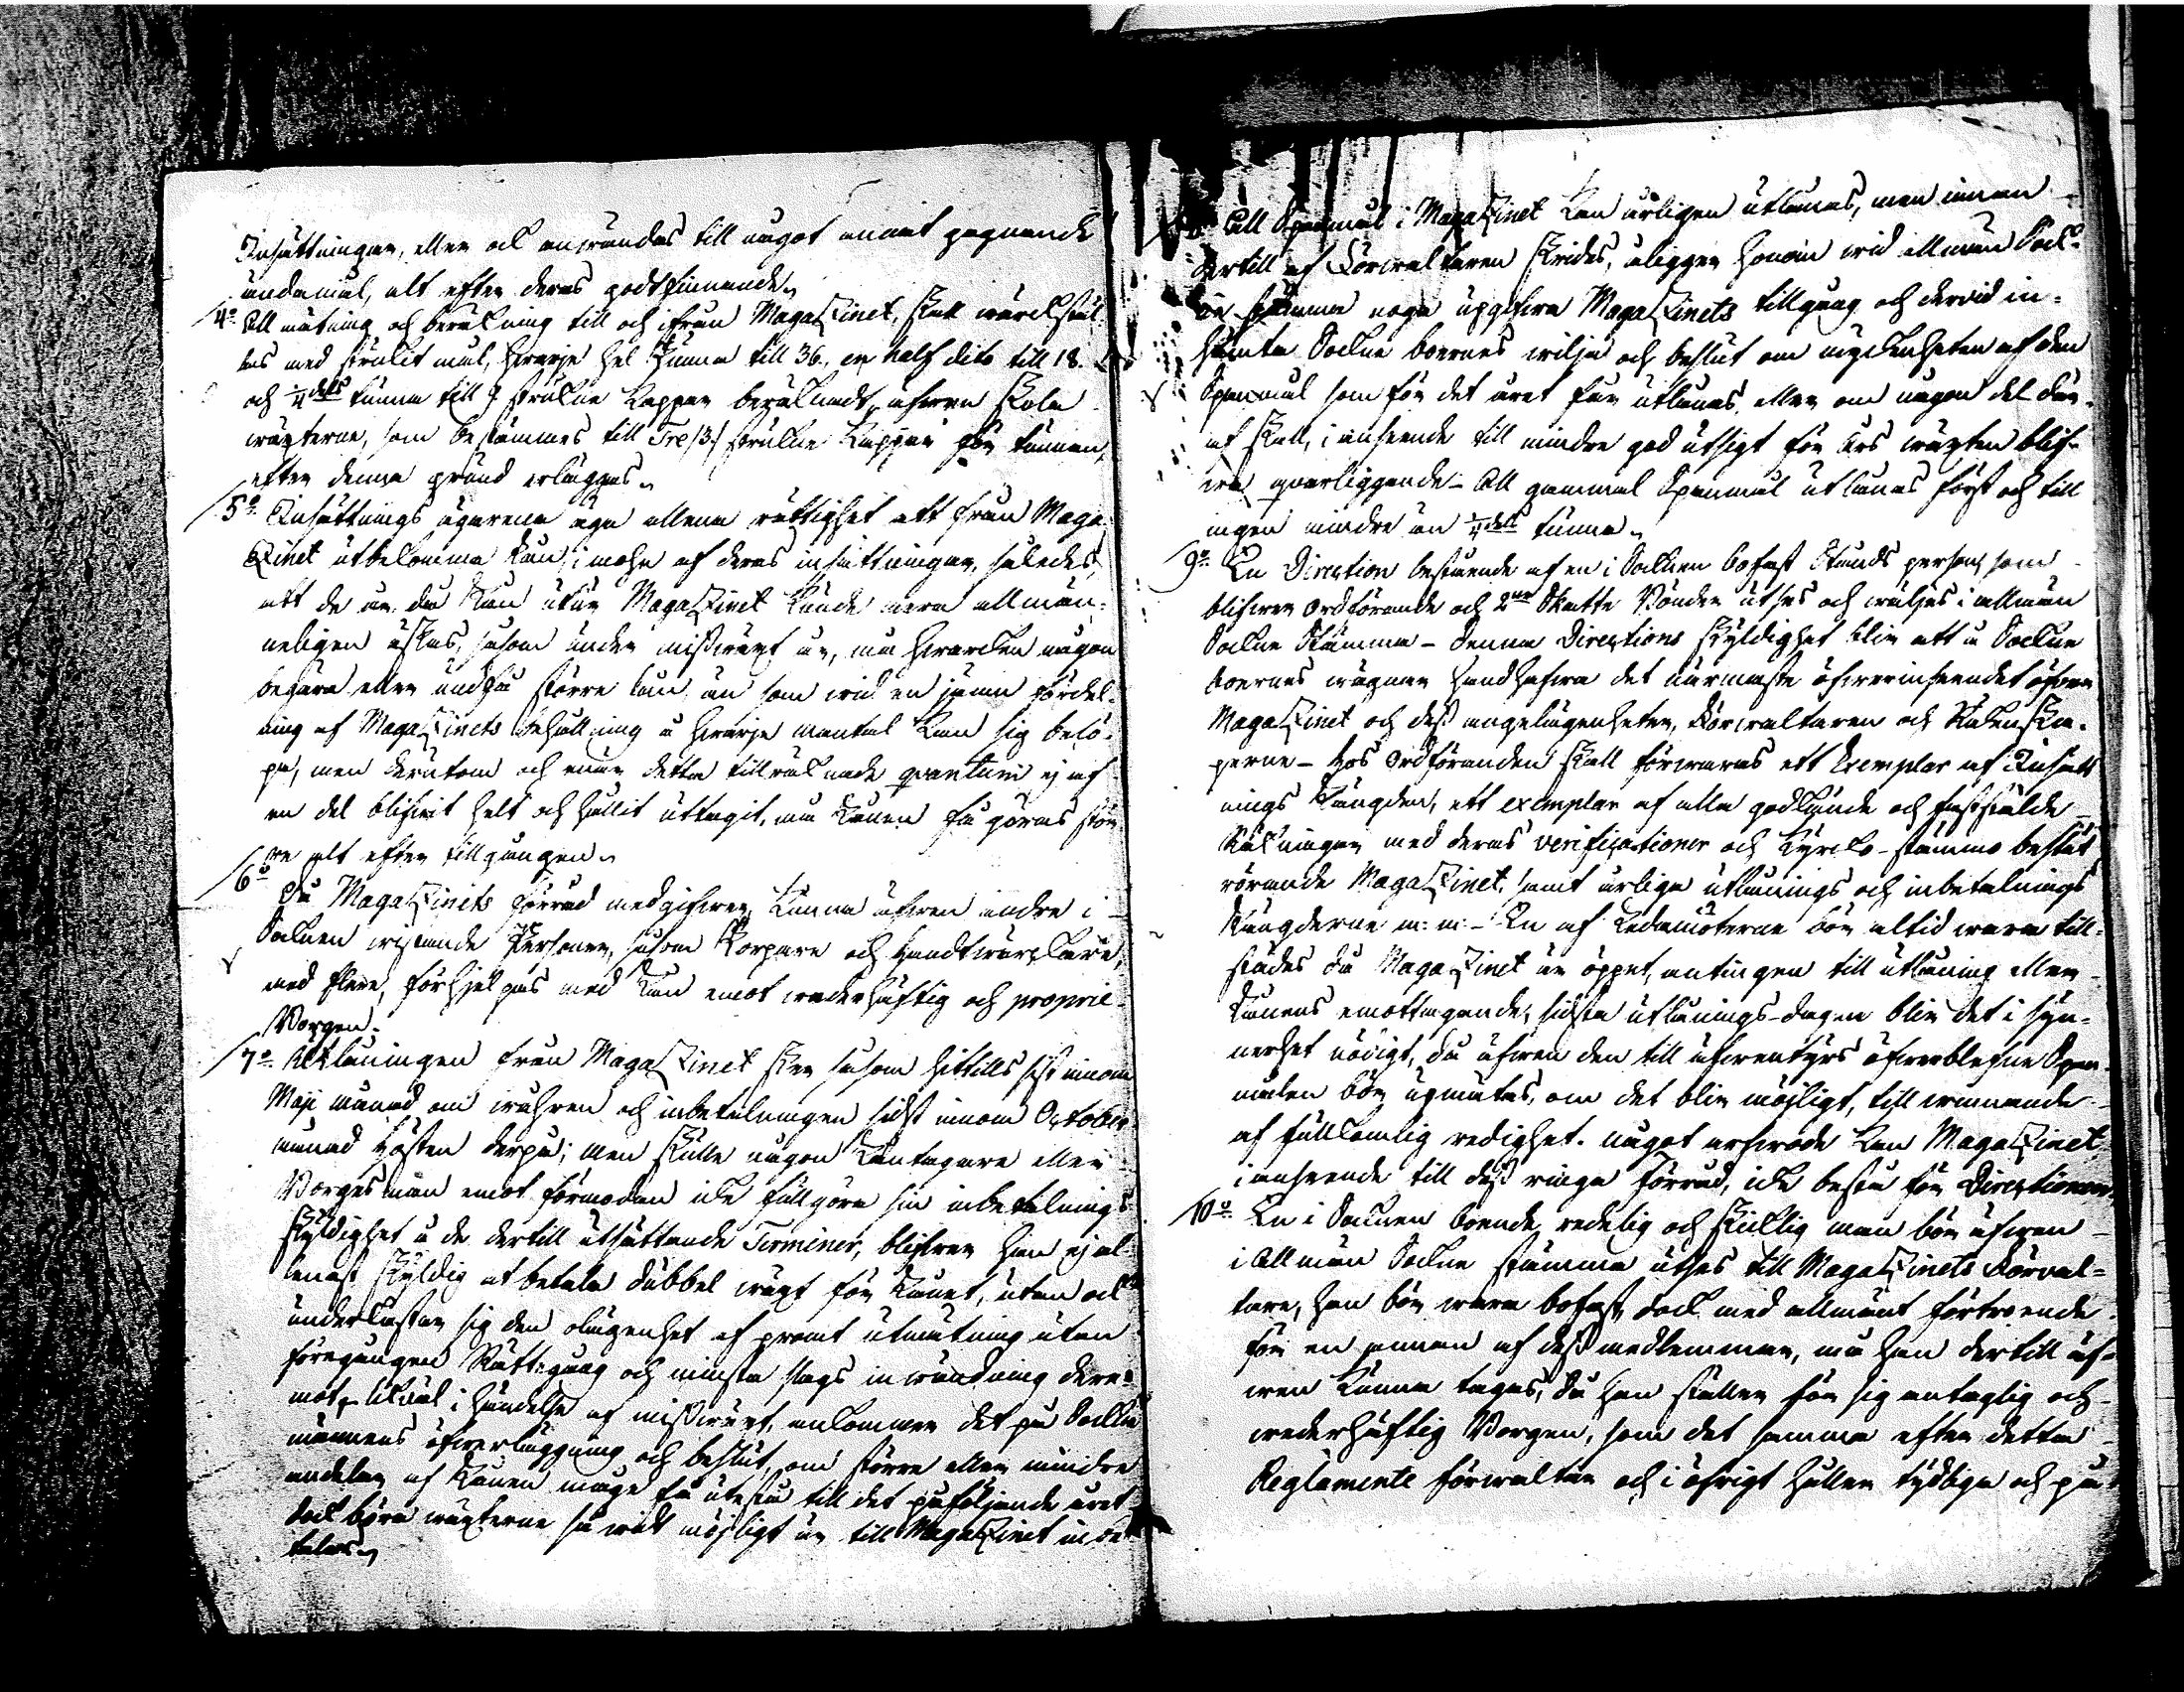 Insättningar, eller ock användas till något annat gagnande
ändamål, alt efter deras godtfinnande.
4o All mätning och beräkning till och ifrån Magazinet, skall wärckstäl-
las med strukit mål, hwarje hel Tunna till 36. en half dito till 18.
och 1/4dels tunna till 9 strukne Kappar beräknadt, äfwen skola
wäxterne, som bestämmes till Tre /3/ strukne Kappar för tunnan,
efter denna grund erläggas.
5o Insättnings ägarena äga allena rättighet att från Maga-
zinet utbekomma Lån, i mohn af deras insättningar, således,
att de år, då Lån utur Magazinet kunde mera allmän-
neligen äskas, såsom under misswäxt år, må hwarken någon
begära eller undfå större lån än som wid en jämn fördel-
ning af Magazinets behållning å hwarje mantal kan sig belö-
pa, men derutom och når detta tillräknade quantum ej af
en del blifwit helt och hållit uttagit, må Lånen få göras stör-
re alt efter tillgången.
6o Då Magazinets förråd medgifwer, kunna äfwen andre i
Socknen wistande Personer, såsom Torpare och Handtwärckare,
med flere, förhjelpas med Lån emot wederhäftig och proprie
Borgen.
7o Utlåningen från Magazinet sker såsom hittills sist innom
Maji månad om wåhren och inbetalningen sidst innom October
månad Hösten derpå; Men skulle någon Låntagare eller
Borgesman emot förmodan icke fullgöra sin inbetalnings
skyldighet å de dertill utsättande Terminer, blifwer han ej al-
lenast skyldig at betala dubbel wäxt för Lånet, utan ock
underkastar sig den olägenhet af promt utmätning utan
föregången Rättegång och minsta slags inwändning dere-
mot, likwäl i händelse af misswäxt, ankommer det på Sockne
männens öfwerläggning och beslut, om större eller mindre
andelar af Lånen måge få utestå till det påföljande året
dock böra wäxterne så widt möjligt är till Magazinet inbe-
talas.
All Spannmål i Magazinet kan årligen utlånas, men innan
dertill af Förwaltaren skrides, åligger honom wid allmän Sock-
ne stämma noga upgifwa Magazinets tillgång och dervid in-
hämta Sockne boernes wilja och beslut om myckenheten af den
Spannmål som för det året får utlånas, eller om någon del der-
af skall, i anseende till mindre god utsigt för års wäxten blif-
wa qvarliggande - All gammal Spannmål utlånas först och till
ingen mindre än 1/4dels tunna.
9o En Direction bestående af en i Socknen bofast Stånds person, som
blifwer Ordförande och 2ne Skatte Bönder utses och wäljes i allmän
Sockne Stämma - Denna Directions skyldighet blir att å Sockne
boernes wägnar handhafwa det närmaste öfwerinseendet öfwer
Magazinet och dess angelägenheter, Förwaltaren och Räkenska-
perne - Hos Ordföranden skall förwaras ett Exemplar af Insätt
nings Längden, ett exemplar af alla godkände och fastställde
Räkningar med deras verificationer och Kyrcko-stämmo beslut
rörande Magazinet, samt årliga utlånings och inbetalnings
Längderne m: m: - En af Ledamöterne bör altid wara till-
städes då Magazinet är öppet, antingen till utlåning eller
Lånens emottagande; sidsta utlånings-dagen blir det i syn-
nerhet nödigt, då äfwen den till äfwentyrs öfwerblefne Span-
målen bör upmätas, om det blir möjligt, till winnande
af fullkomlig redighet. något arfwode kan Magazinet,
i anseende till dess ringa Förråd, icke bestå för Directionen.
10o En i Socknen boende redelig och skicklig man bör äfwen
i Allmän Sockne stämma utses till Magazinets Förwal-
tare, han bör wara bofast, dock med allmänt förtroende
för en annan af dess medlemmar, må han dertill äf-
wen kunna tagas, då han ställer för sig antaglig och
wederhäftig Borgen, som det samma efter detta
Reglamente förwaltar och i öfrigt håller tydliga och på-